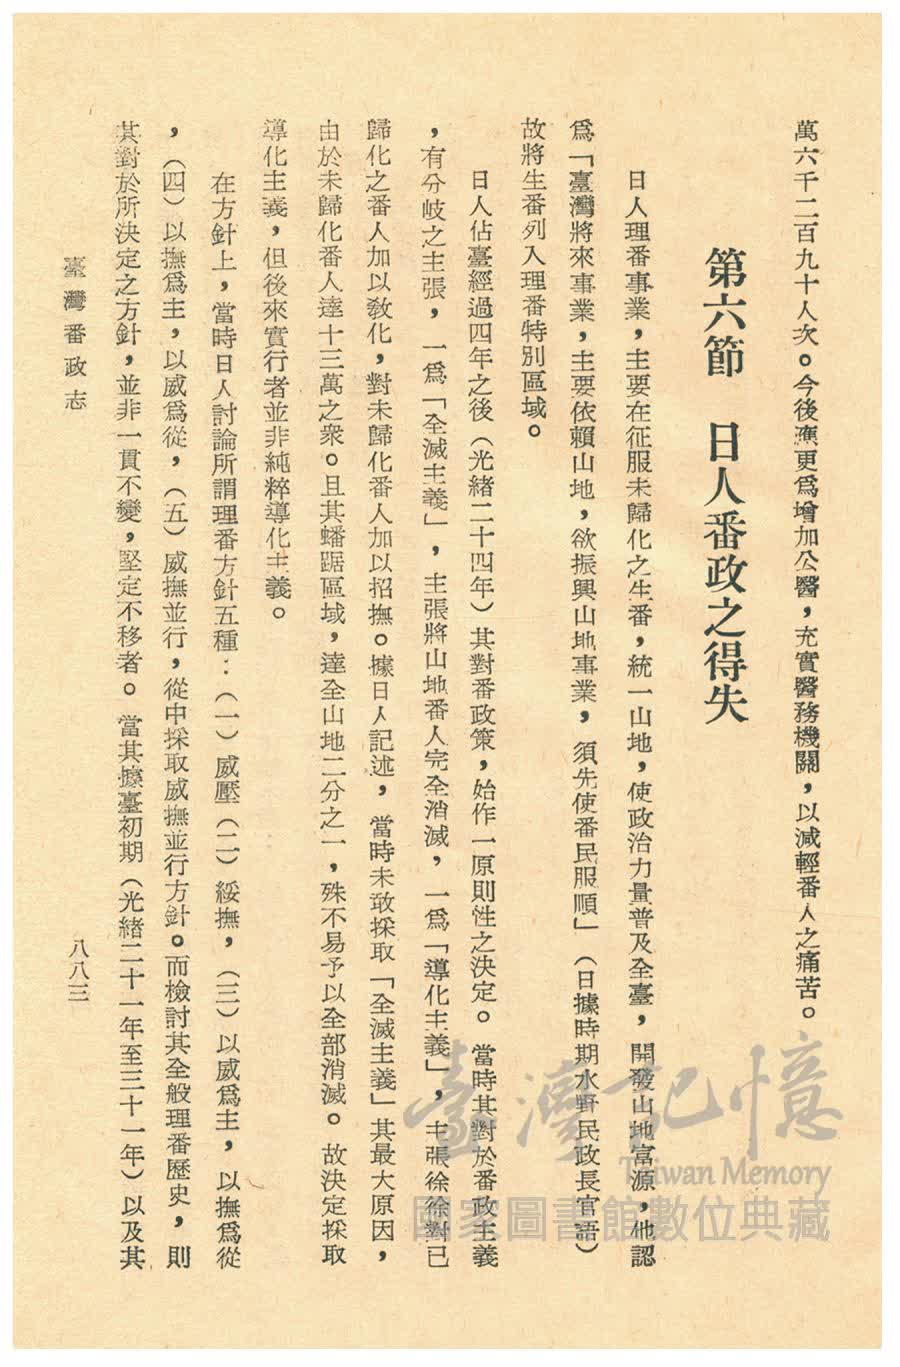 萬六千二百九十人次。今後應更爲增加公醫，充實醫務機關，以減輕番人之痛苦。
第六節　日人番政之得失
日人理番事業，主要在征服未歸化之生番，統一山地，使政治力量普及全臺，開發山地富源，他認
爲「臺灣將來事業，主要依賴山地，欲振興山地事業，須先使番民服順」（日據時期水野民政長官語）
故將生番列入理番特別區域。
日人佔臺經過四年之後（光緒二十四年）其對番政策，始作一原則性之決定。當時其對於番政主義
，有分岐之主張，一爲「全滅主義」，主張將山地番人完全消滅，一爲「導化主義」，主張徐徐對已
歸化之番人加以教化，對未歸化番人加以招撫。據日人記述，當時未敢採取「全滅主義」其最大原因，
由於未歸化番人達十三萬之衆。且其蟠踞區域，達全山地二分之一，殊不易予以全部消滅。故決定採取
導化主義，但後來實行者並非純粹導化主義。
在方針上，當時日人討論所謂理番方針五種：（一）威壓（二）綏撫，（三）以威爲主，以撫爲從
，（四）以撫爲主，以威爲從，（五）威撫並行，從中採取威撫並行方針。而檢討其全般理番歷史，則
其對於所決定之方針，並非一貫不變，堅定不移者。當其據臺初期（光緒二十一年至三十一年）以及其
臺灣番政志
八八三
臺灣記憶
Taiwan Memory
國家圖書館數位典藏